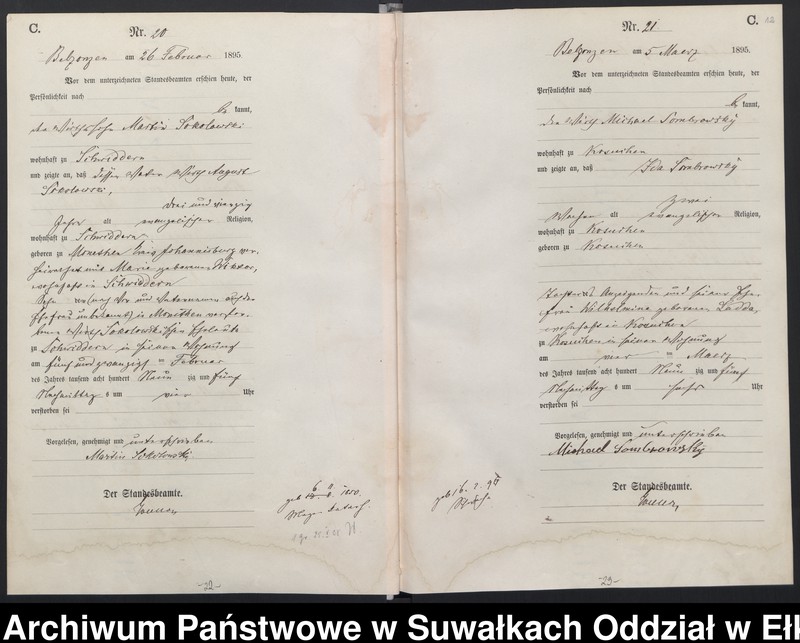 C.
Nr. 20
Belzonzen am 26 Februar 1895.
Vor dem unterzeichneten Standesbeamten erschien heute, der
Persönlichkeit nach
be kannt,
der Wirthssohn Martin Sokolowski
wohnhaft zu Schwiddern
und zeigte an, daß dessen Vater Wirth August
Sokolowski,
drei und vierzig
Jahre alt evangelischer Religion,
wohnhaft zu Schwiddern
geboren zu Monethen Kreis Johannisburg ver-
heirathet mit Marie geborenen
wohnhaft in Schwiddern
Sohn der (nach Vor und Unternamen auch der
Ehefrau unbekannt) in Monethen verstor-
benen Wirth Sokolowskischen Eheleute
zu Schwiddern in seiner Wohnung
am fünf und zwanzigsten Februar
des Jahres tausend acht hundert Neun zig und fünf
Nachmittags um vier Uhr
verstorben sei
Vorgelesen, genehmigt und unterschrieben
Martin Sokolowski
Der Standesbeamte.
geb. 1850.
-22-
C.
Nr. 21
Belzonzen am 5 Maerz 1895.
Vor dem unterzeichneten Standesbeamten erschien heute, der
Persönlichkeit nach
be kannt,
der Wirth Michael Sombrowsky
wohnhaft zu Kosuchen
und zeigte an, daß Ida Sombrowsky
zwei
Wochen alt evangelischer Religion,
wohnhaft zu Kosuchen
geboren zu Kosuchen
Tochter des Anzeigenden und seiner Ehe-
frau Wilhelmine geborenen Ladda,
wohnhaft in Kosuchen
zu Kosuchen in seiner Wohnung
am vier ten Maerz
des Jahres tausend acht hundert Neun zig und fünf
Nachmittags um sechs Uhr
verstorben sei
Vorgelesen, genehmigt und unterschrieben
Michael Sombrowsky
Der Standesbeamte.
-23-
Archiwum Państwowe w Suwałkach Oddział w Eł